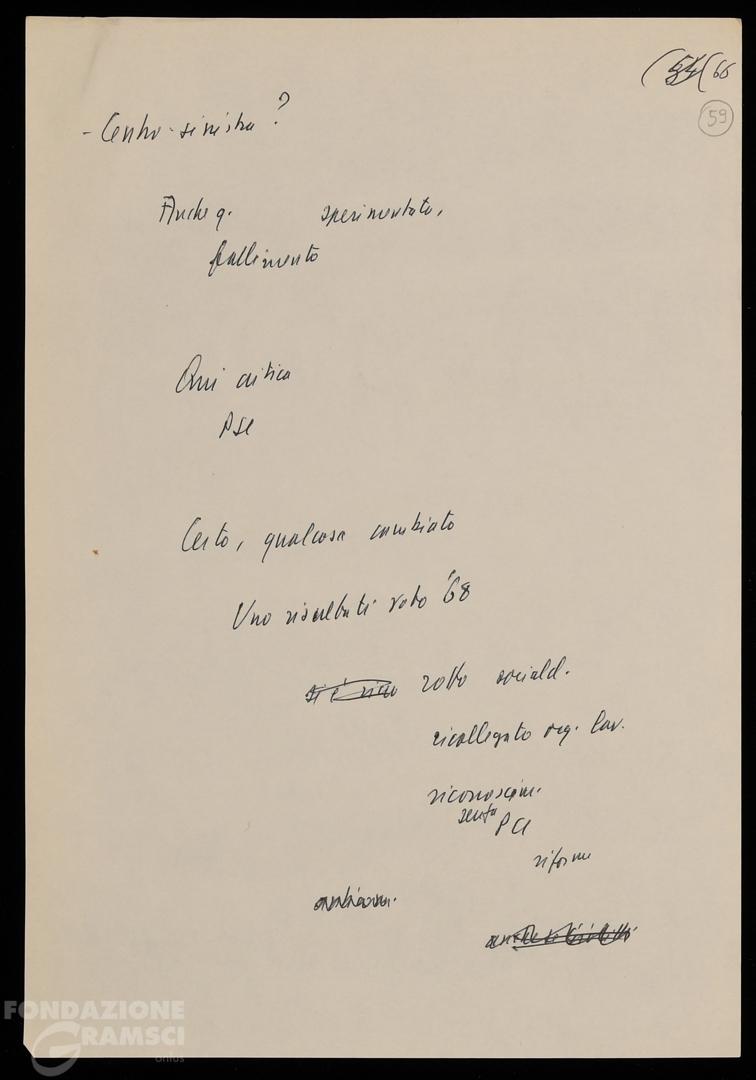 (54 (66
59
- Centro-sinistra?
Anche q. sperimentato,
fallimento
Qui critica
PSI
Certo, qualcosa cambiato
Uno risultati voto '68
rotto sociald.
ricollegato org. lav.
riconoscim.
senza PCI
riforme
FONDAZIONE
GRAMSCI
onlus